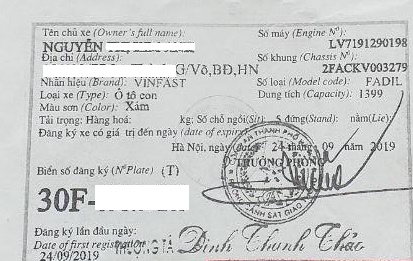 Tên chủ xe (Owner's full name): Số máy (Engine Nº):
NGUYỄN LV7191290198
Địa chỉ (Address): Số khung (Chassis Nº):
/Võ,BĐ,HN 2FACKV003279
Nhãn hiệu (Brand): VINFAST Số loại (Model code): FADIL
Loại xe (Type): Ô tô con Dung tích (Capacity): 1399
Màu sơn (Color): Xám
Tải trọng: Hàng hoá: kg; Số chỗ ngồi(Sit): 5 đứng(Stand): nằm(Lie):
Đăng ký xe có giá trị đến ngày (date of expiry)
Hà Nội, ngày (date) 24 tháng 09 năm 2019
TRƯỞNG PHÒNG
Biển số đăng ký (NºPlate) (T)
30F-
Đăng ký lần đầu ngày:
Date of first registration
24/09/2019 Đinh Thanh Thảo